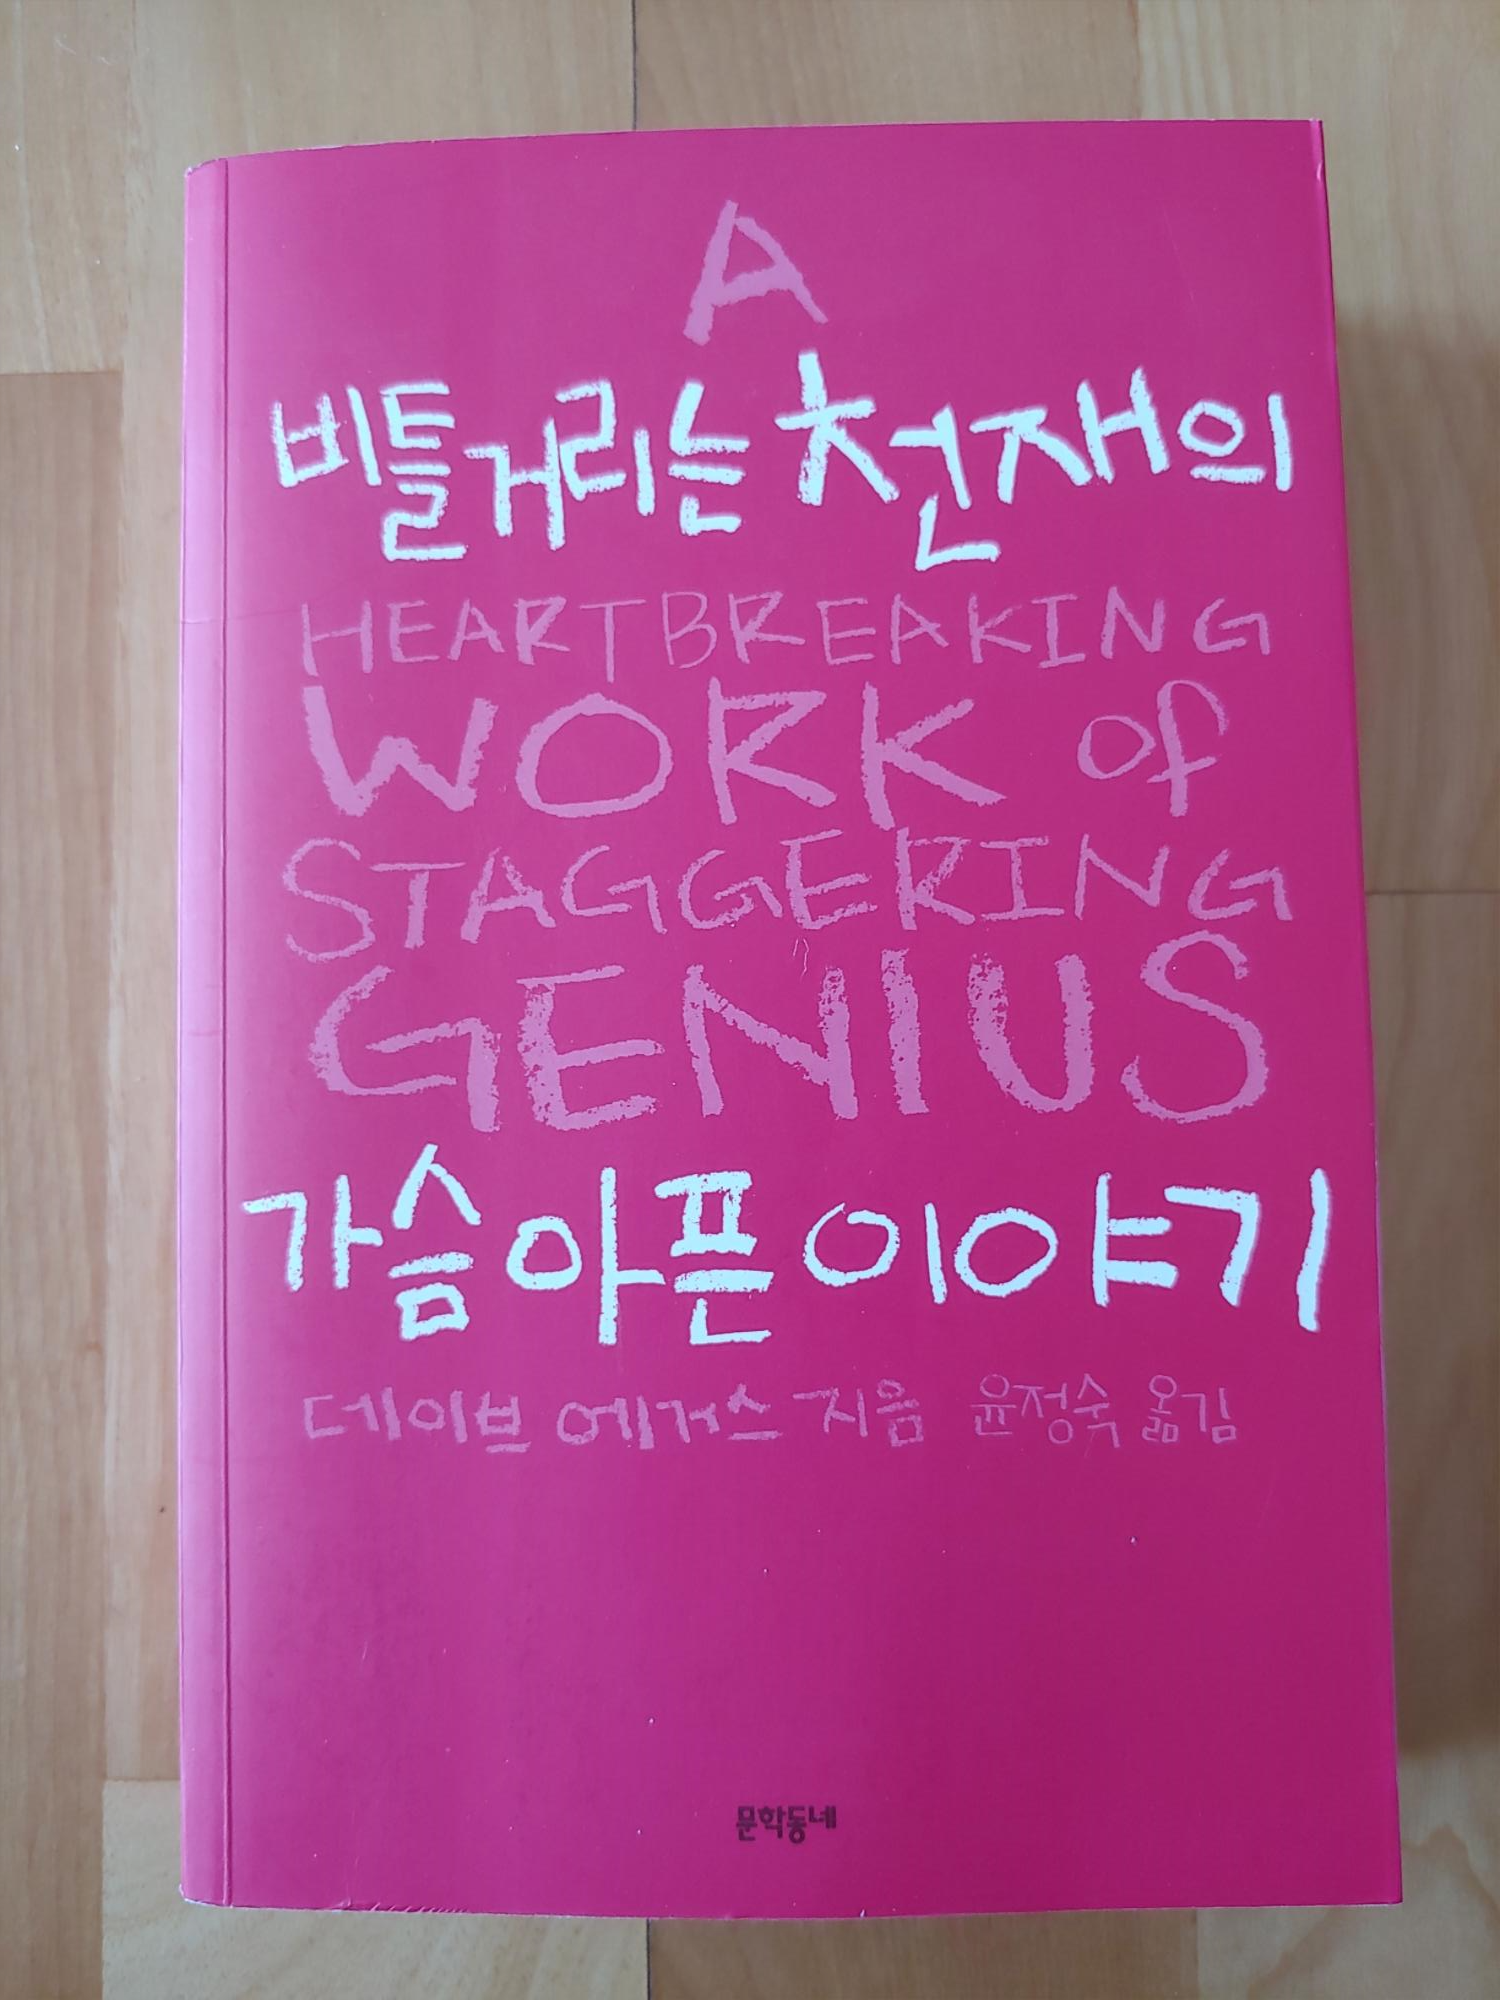 A
비틀거리는 천재의
HEARTBREAKING
WORK of
STAGGERING
GENIUS
가슴 아픈 이야기
데이브 에거스 지음 윤정숙 옮김
문학동네